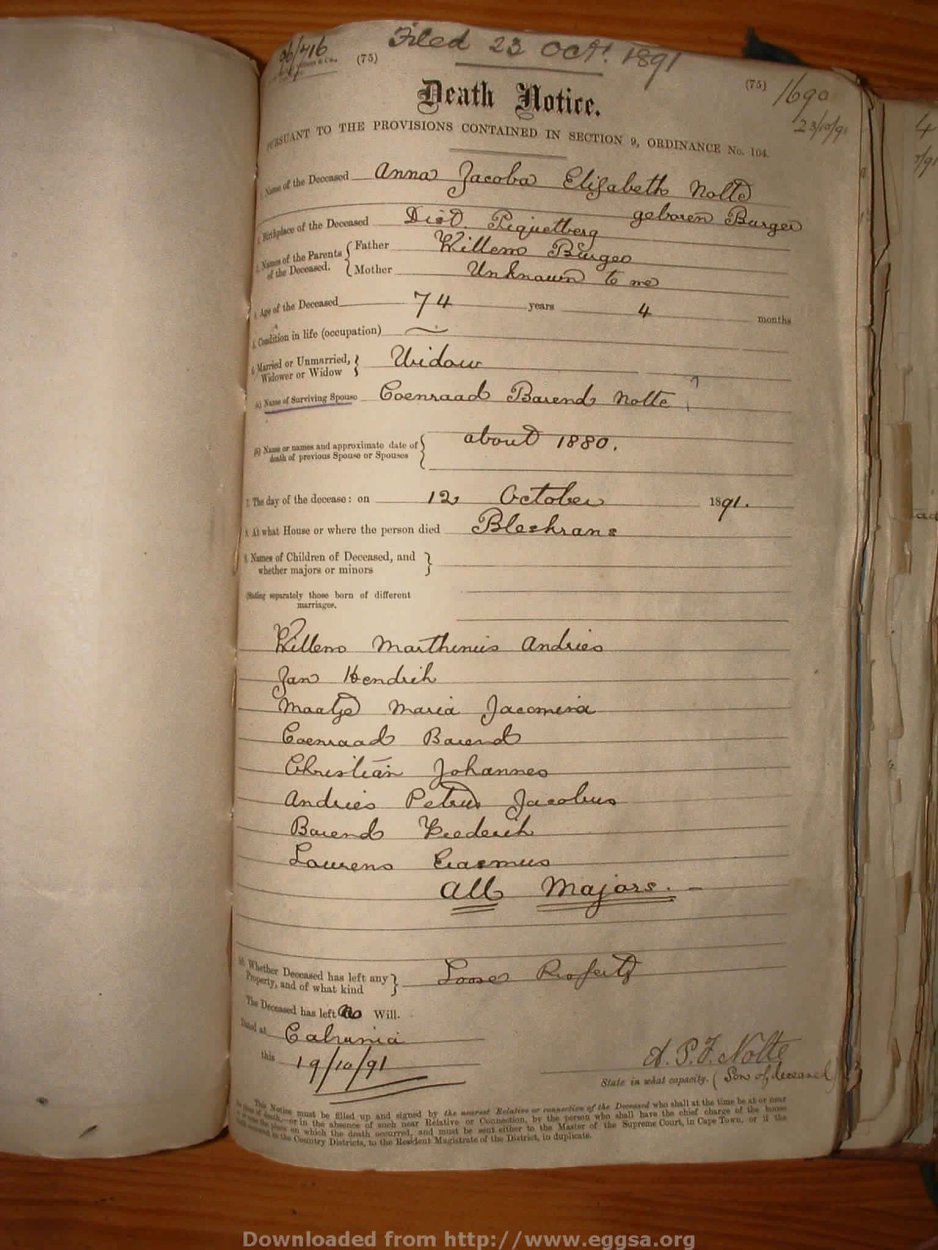 96/716
Filed 23 Oct. 1891
(75)
(75)
1690
23/10/91
Death Notice.
PURSUANT TO THE PROVISIONS CONTAINED IN SECTION 9, ORDINANCE No. 104.
1. Name of the Deceased Anna Jacoba Elizabeth Nolte
geboren Burger
2. Birthplace of the Deceased Dist. Piquetberg
3. Names of the Parents of the Deceased. Father Willem Burger
Mother Unknown to me
4. Age of the Deceased 74 years 4 months
5. Condition in life (occupation) —
6. Married or Unmarried, Widower or Widow Widow
(a) Name of Surviving Spouse Coenraad Barend Nolte
(b) Name or names and approximate date of death of previous Spouse or Spouses about 1880.
7. The day of the decease: on 12 October 1891.
8. At what House or where the person died Bleskrans
9. Names of Children of Deceased, and
whether majors or minors
(Stating separately those born of different
marriages.
Willem Marthinus Andries
Jan Hendrik
Maatje Maria Jacomina
Coenraad Barend
Christian Johannes
Andries Petrus Jacobus
Barend Frederik
Laurens Erasmus
All Majors. —
10. Whether Deceased has left any
Property, and of what kind Loose Property
The Deceased has left no Will.
Dated at Calvinia
this 19/10/91
A. P. J. Nolte
State in what capacity. (Son of deceased)
This Notice must be filled up and signed by the nearest Relative or connection of the Deceased who shall at the time be at or near
the place of death,—or in the absence of such near Relative or Connection, by the person who shall have the chief charge of the house
or the place on which the death occurred, and must be sent either to the Master of the Supreme Court, in Cape Town, or if the
death occurred in the Country Districts, to the Resident Magistrate of the District, in duplicate.
Downloaded from http://www.eggsa.org